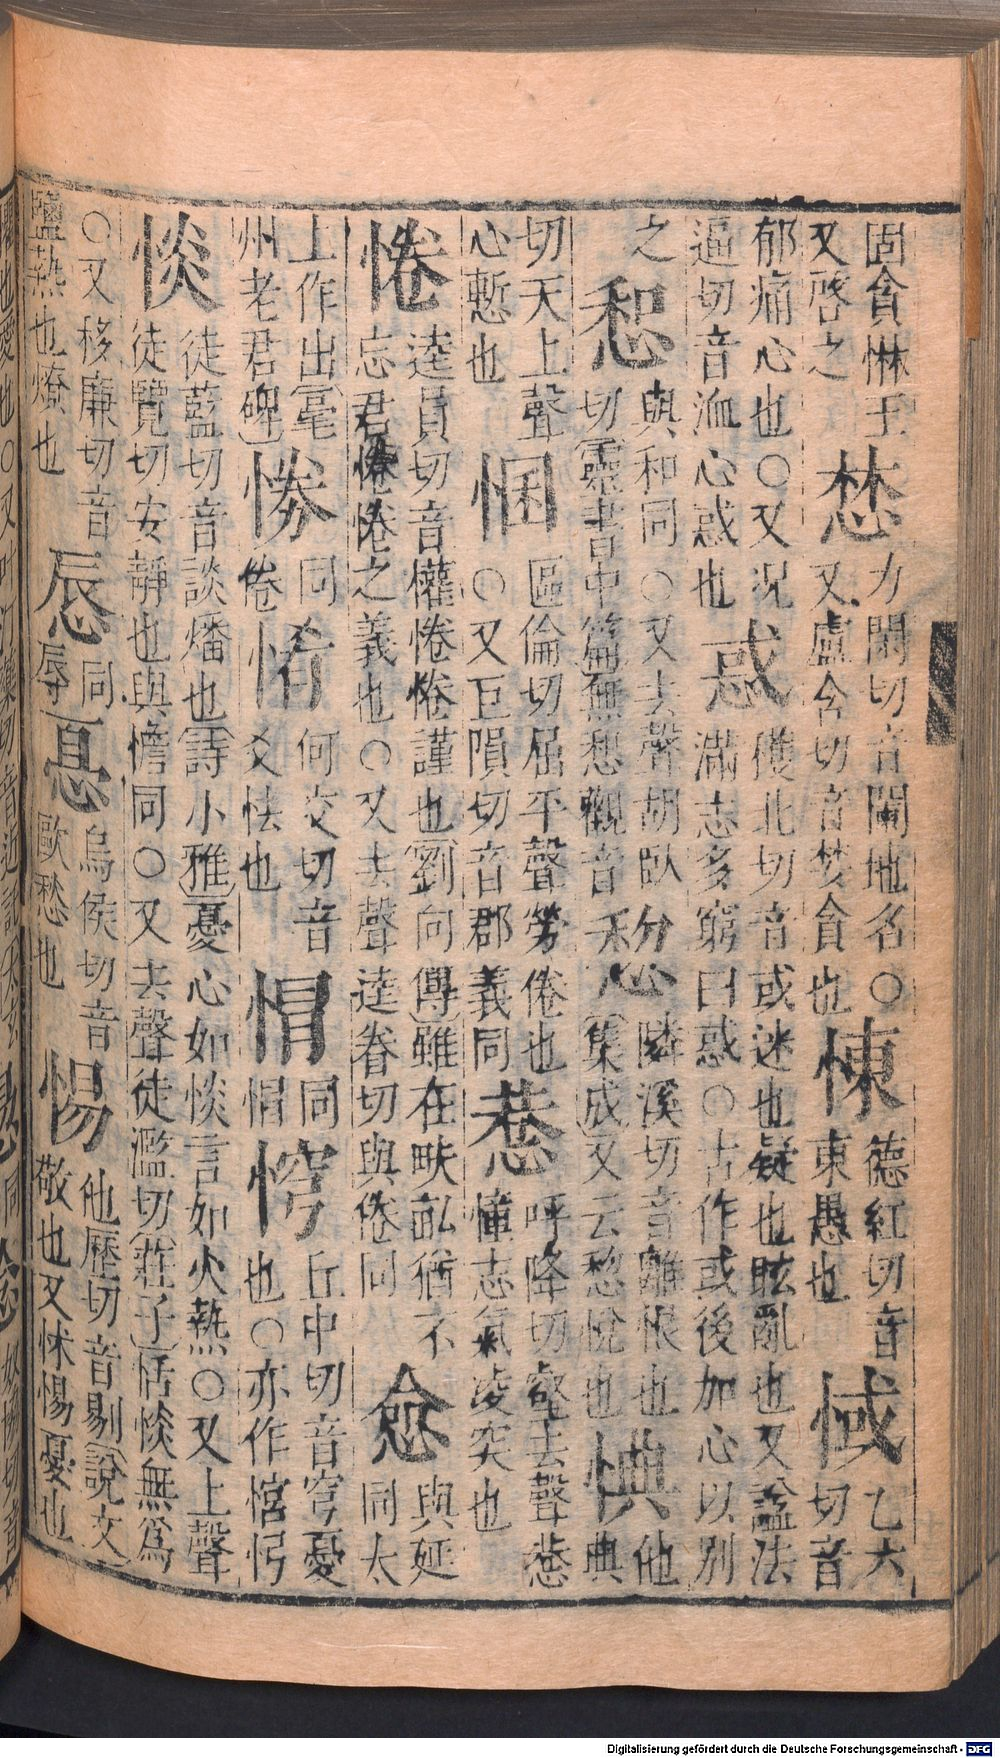 固貪惏王又啓之 力閑切音闌地名〇又盧含切音婪貪也 德紅切音東愚也 惐 乙六切音
郁痛心也〇又況逼切音洫心惑也 惑 穫北切音或迷也疑也眩亂也又諡法滿志多窮曰惑〇古作或後加心以别
之 惒 與和同〇又去聲胡臥切(靈書中篇)無惒觀音禾 悡 隣溪切音離恨也(集成)又云愁悅也 㥏 他典
切天上聲心慙也 區倫切屈平聲勞倦也〇又巨隕切音郡義同 呼降切壑去聲憧志氣凌突也
惓 逵員切音權惓惓謹也(劉向傳)雖在畎畝猶不忘君惓惓之義也〇又去聲逵眷切與倦同 與延同太
上作出(亳州老君碑) 同倦 何交切音爻怯也 同 丘中切音穹憂也〇亦作
惔 徒藍切音談燔也(詩小雅)憂心如惔言如火熱〇又上聲徒覽切安靜也與憺同〇又去聲徒濫切(莊子)恬惔無爲
〇又移廉切音鹽熱也燎也 同辱 烏侯切音歐愁也 惕 他歷切音剔(說文)敬也又怵惕憂也
Digitalisierung gefördert durch die Deutsche Forschungsgemeinschaft - DFG